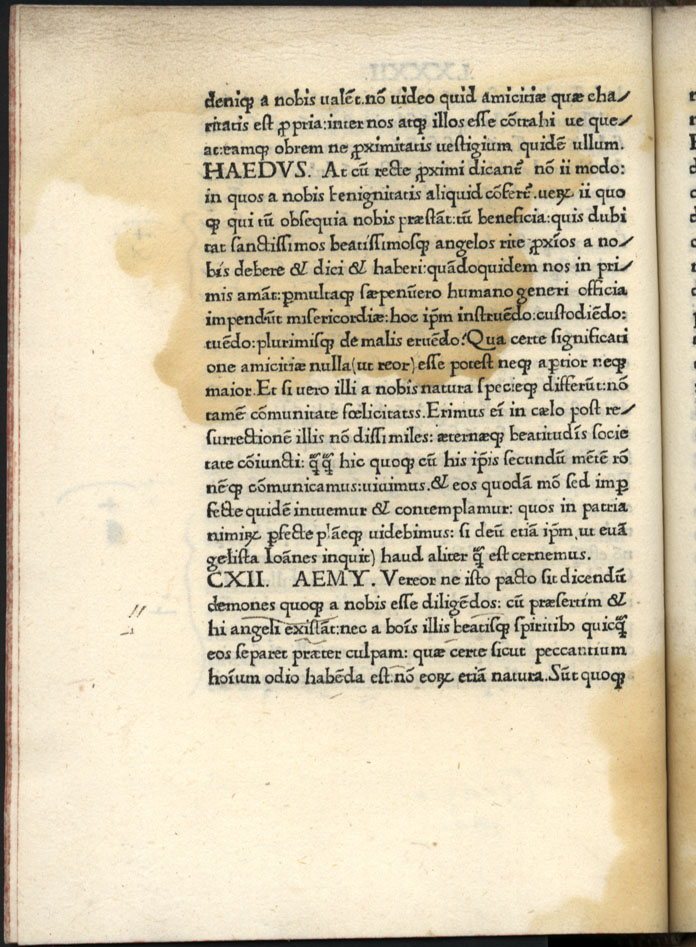 deniqꝫ a nobis ualēt.nō uideo quid amicitiæ quæ cha⸗
ritatis est ꝓpria:inter nos atqꝫ illos esse cōtrahi ue que⸗
at:eamqꝫ obrem ne ꝓximitatis uestigium quidē ullum.
HAEDVS. At cū recte ꝓximi dicant̄ nō ii modo:
in quos a nobis benignitatis aliquid cōfert̄.ueꝝ ii quo
qꝫ qui tū obsequia nobis præstāt:tū beneficia:quis dubi
tat sanctissimos beatissimosqꝫ angelos rite ꝓxīos a no⸗
bis debere & dici & haberi:quādoquidem nos in pri⸗
mis amāt:ꝑmultaqꝫ sæpenūero humano generi officia
impendūt misericordiæ:hoc ip̄m instruēdo:custodiēdo:
tuēdo:plurimisqꝫ de malis eruēdo?Qua certe significati
one amicitiæ nulla(ut reor)esse potest neqꝫ aꝑtior neqꝫ
maior.Et si uero illi a nobis natura specieqꝫ differūt:nō
tamē cōmunitate fœlicitatss.Erimus ei᷎ in cælo post re⸗
surrectionē illis nō dissimiles: æternæqꝫ beatitudīs socie
tate cōiuncti: q̄q̄ hic quoqꝫ cū his ip̄is secundū mētē rō
nēqꝫ cōmunicamus:uiuimus.& eos quodā mō sed imꝑ
fecte quidē intuemur & contemplamur: quos in patria
nimiꝝ ꝑfecte plāeqꝫ uidebimus: si deū etiā ip̄m,ut euā
gelista Ioānes inquit) haud aliter q̄ est cernemus.
CXII. AEMY. Vereor ne isto pacto sit dicendū
demones quoqꝫ a nobis esse diligēdos: cū præsertim &
hi angeli existāt:nec a boīs illis beatisqꝫ spiritibꝰ quicq̄
eos separet præter culpam: quæ certe sicut peccantium
hoīum odio habēda est:nō eoꝝ etiā natura.Sūt quoqꝫ